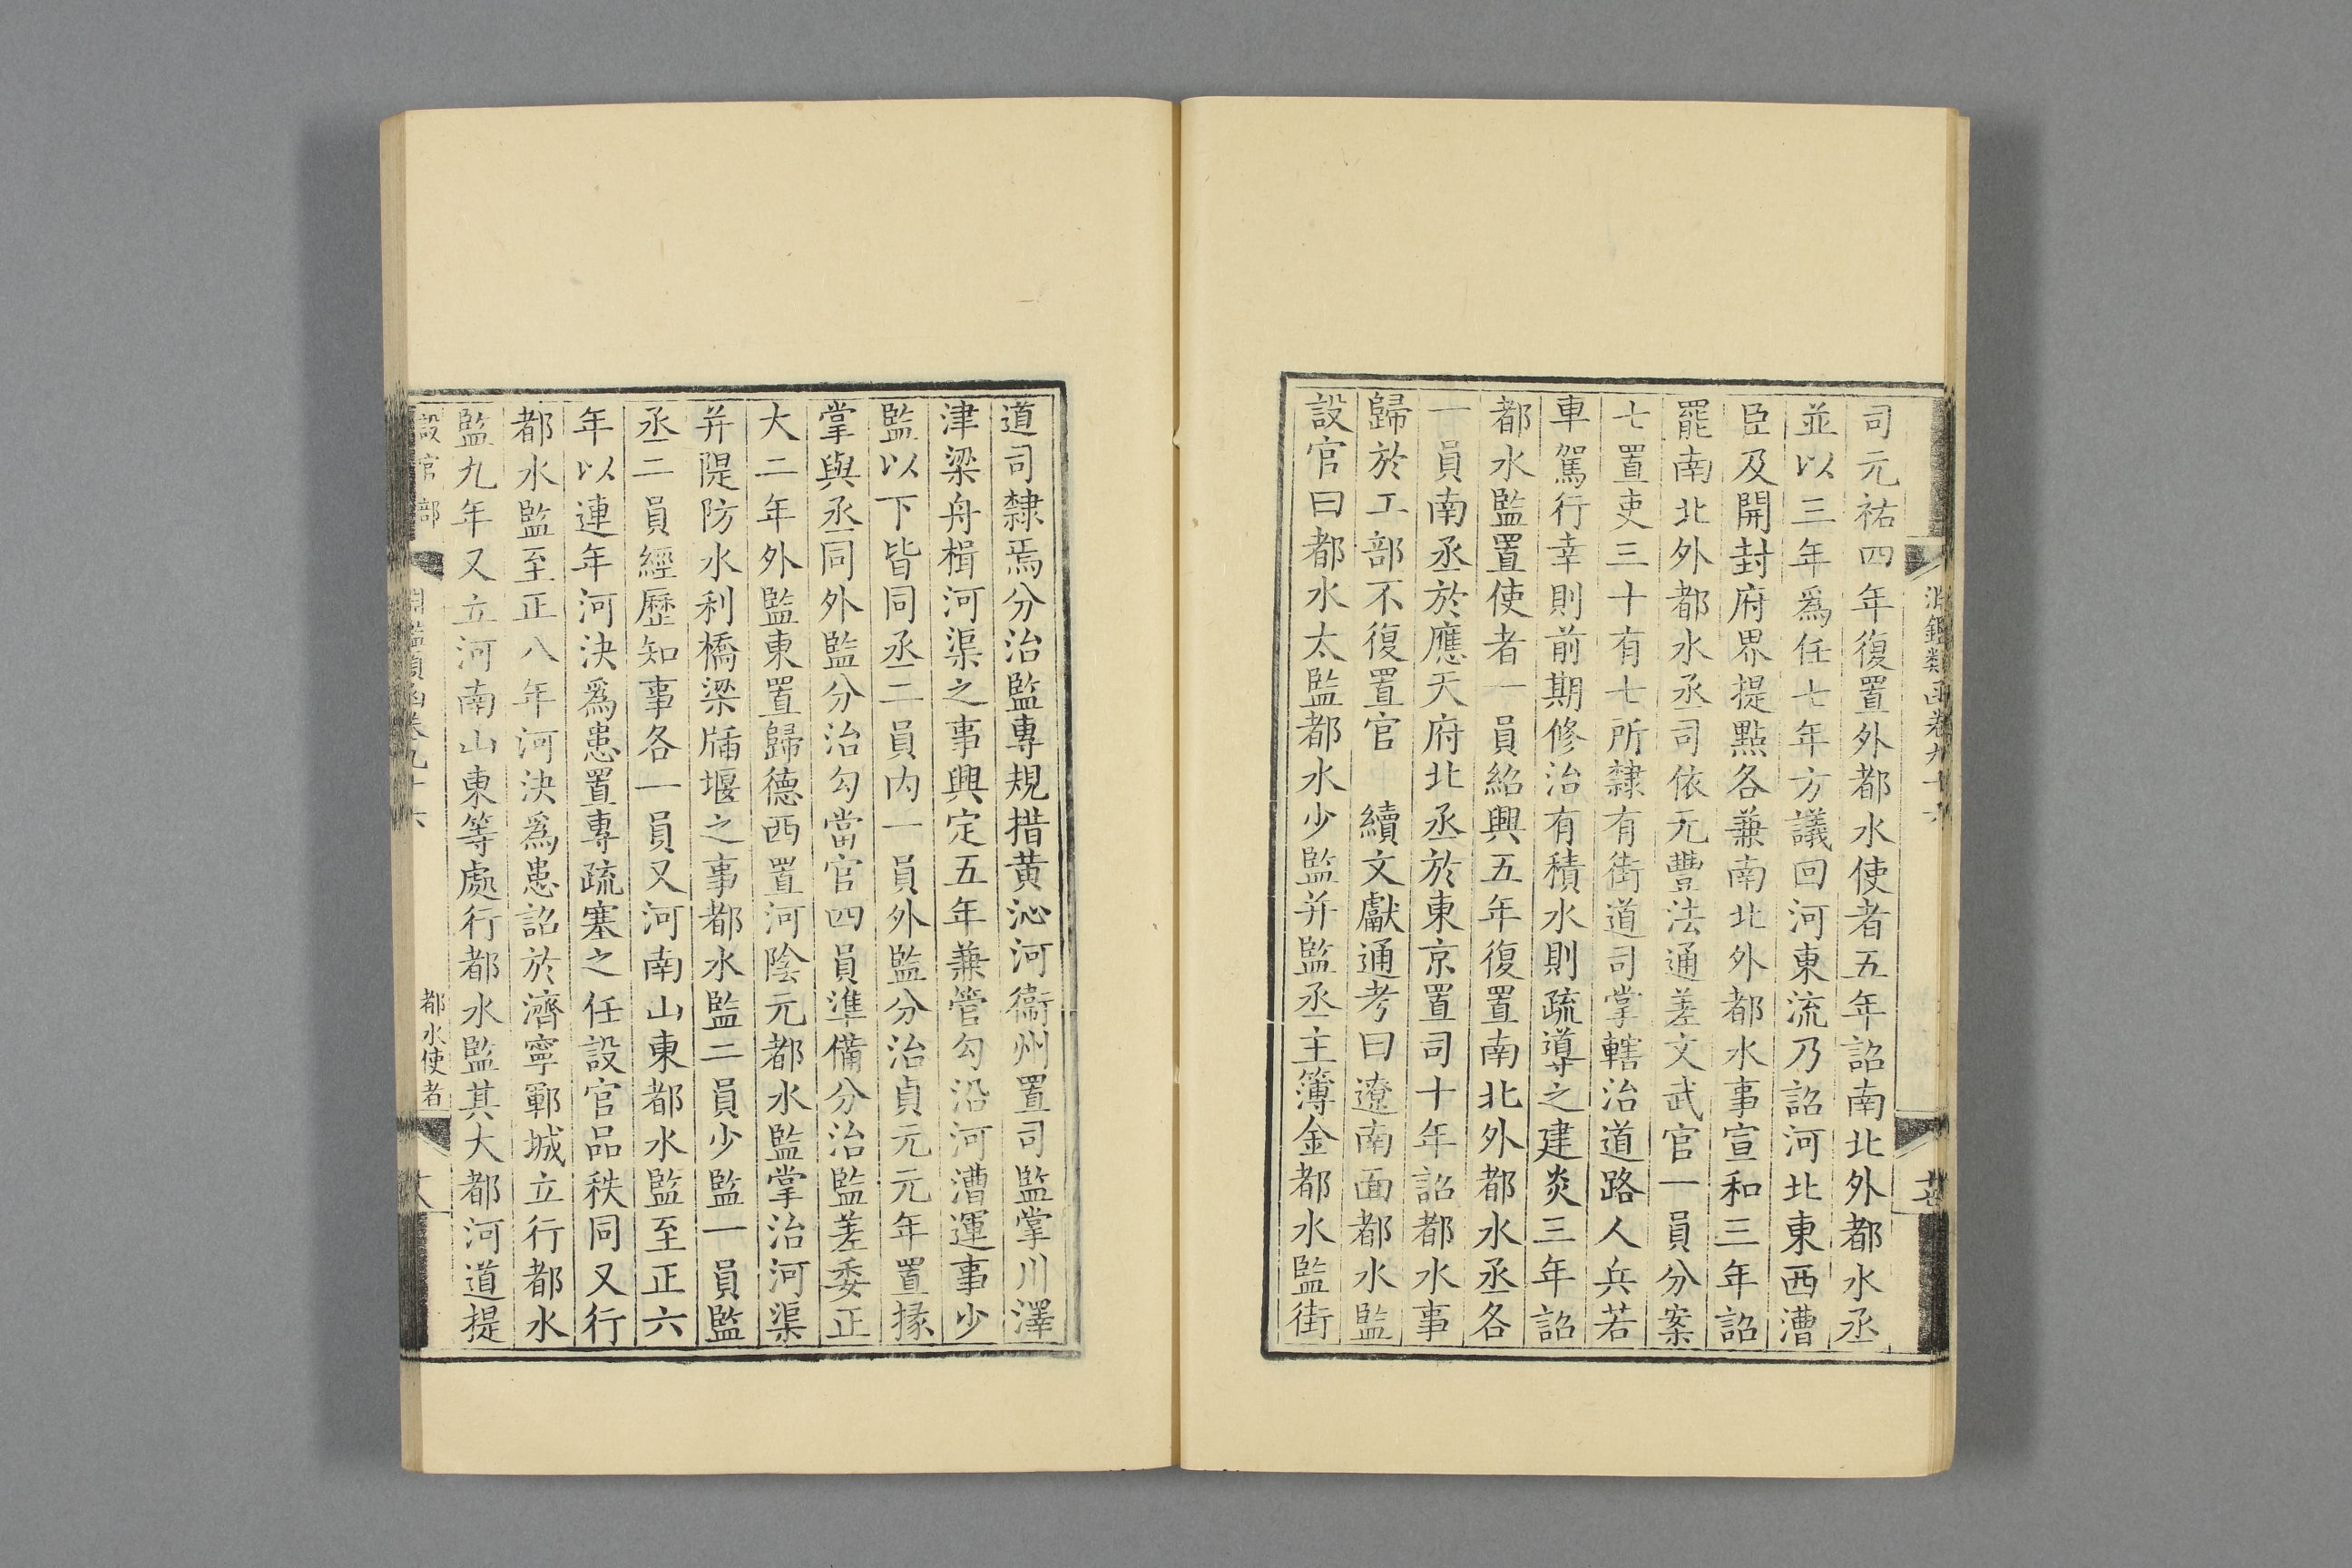 淵鑑類函卷九十六
司元祐四年復置外都水使者五年詔南北外都水丞
並以三年爲任七年方議回河東流乃詔河北東西漕
臣及開封府界提點各兼南北外都水事宣和三年詔
罷南北外都水丞司依元豐法通差文武官一員分案
七置吏三十有七所隸有街道司掌轄治道路人兵若
車駕行幸則前期修治有積水則疏導之建炎三年詔
都水監置使者一員紹興五年復置南北外都水丞各
一員南丞於應天府北丞於東京置司十年詔都水事
歸於工部不復置官 續文獻通考曰遼南面都水監
設官曰都水太監都水少監并監丞主簿金都水監街
道司隸焉分治監專規措黄沁河衞州置司監掌川澤
津梁舟楫河渠之事興定五年兼管勾沿河漕運事少
監以下皆同丞二員内一員外監分治貞元元年置掾
掌與丞同外監分治勾當官四員準備分治監差委正
大二年外監東置歸德西置河陰元都水監掌治河渠
并隄防水利橋梁牐堰之事都水監二員少監一員監
丞二員經歷知事各一員又河南山東都水監至正六
年以連年河決爲患置專疏塞之任設官品秩同又行
都水監至正八年河決爲患詔於濟寧鄆城立行都水
監九年又立河南山東等處行都水監其大都河道提
設官部 淵鑑類函卷九十六 都水使者